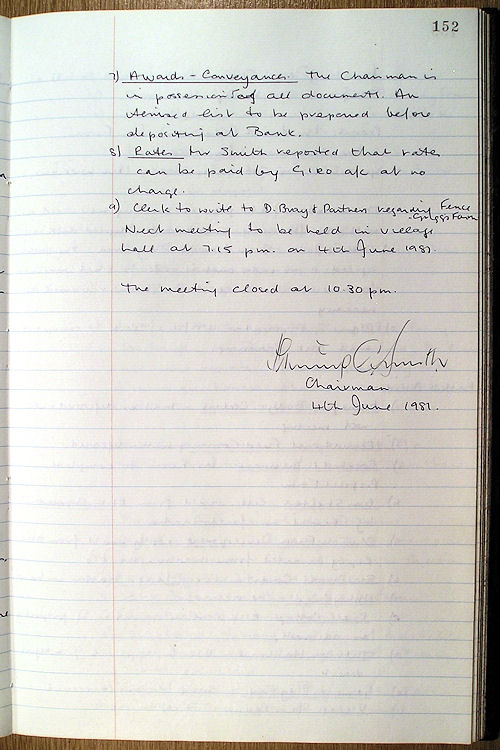 152
7) Awards - Conveyances. The Chairman is
in possession of all documents. An
itemised list to be prepared before
depositing at Bank.
8) Rates Mr Smith reported that rates
can be paid by GIRO a/c at no
charge.
9) Clerk to write to D. Bray & Partners regarding Fence
- Griggs Farm
Next meeting to be held in village
hall at 7.15 pm. on 4th June 1981.
The meeting closed at 10.30 pm.
Smith
Chairman
4th June 1981.